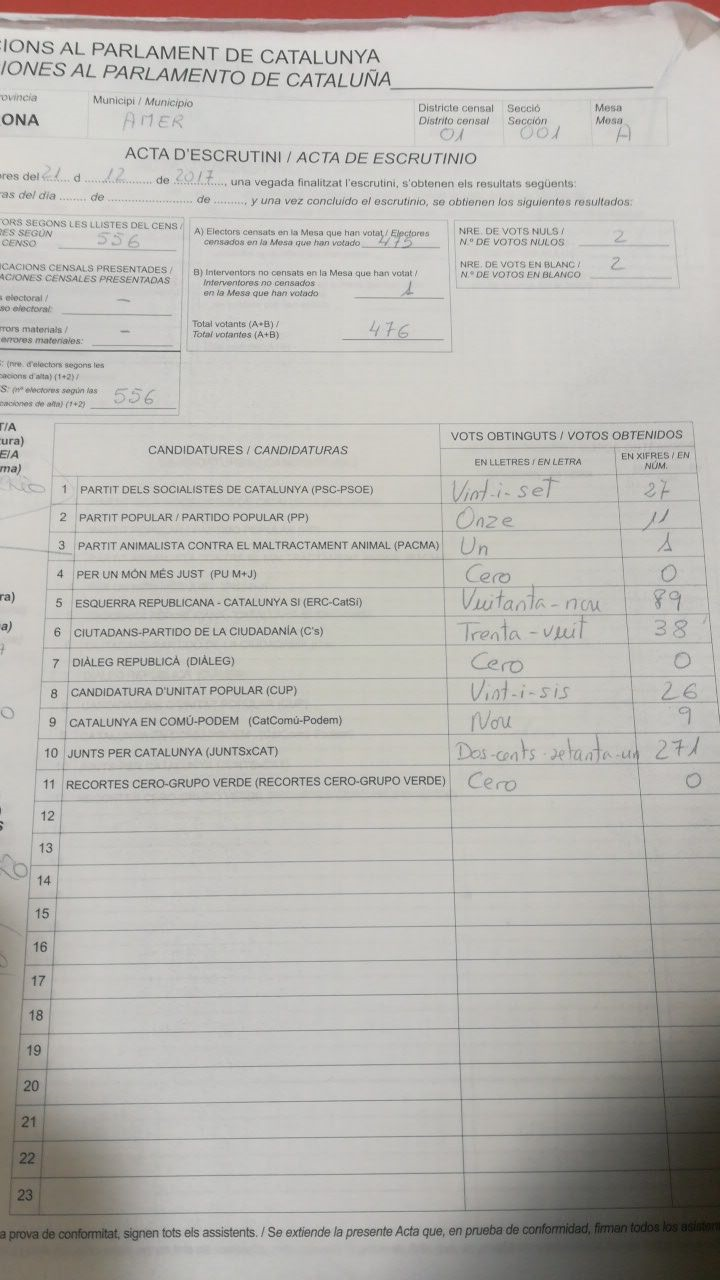 CIONS AL PARLAMENT DE CATALUNYA
IONES AL PARLAMENTO DE CATALUÑA
rovíncia
ONA
Municipi / Municipio
AMER
Districte censal
Distrito censal
01
Secció
Sección
001
Mesa
Mesa
A
ACTA D'ESCRUTINI / ACTA DE ESCRUTINIO
ores del 21 d 12 de 2017, una vegada finalitzat l'escrutini, s'obtenen els resultats següents:
ras del día ......... de ......................... de ........., y una vez concluido el escrutinio, se obtienen los siguientes resultados:
TORS SEGONS LES LLISTES DEL CENS /
RES SEGÚN
CENSO 556
ICACIONS CENSALS PRESENTADES /
ACIONES CENSALES PRESENTADAS
s electoral / –
so electoral:
rrors materials / –
errores materiales:
S: (nre. d'electors segons les
cacions d'alta) (1+2) /
S: (nº electores según las
caciones de alta) (1+2) 556
A) Electors censats en la Mesa que han votat / Electores
censados en la Mesa que han votado 475
B) Interventors no censats en la Mesa que han votat /
Interventores no censados
en la Mesa que han votado 1
Total votants (A+B) /
Total votantes (A+B) 476
NRE. DE VOTS NULS /
N.º DE VOTOS NULOS 2
NRE. DE VOTS EN BLANC /
N.º DE VOTOS EN BLANCO 2
T/A
tura)
E/A
ma)
CANDIDATURES / CANDIDATURAS
VOTS OBTINGUTS / VOTOS OBTENIDOS
EN LLETRES / EN LETRA
EN XIFRES / EN
NÚM.
1 PARTIT DELS SOCIALISTES DE CATALUNYA (PSC-PSOE) Vint-i-set 27
2 PARTIT POPULAR / PARTIDO POPULAR (PP) Onze 11
3 PARTIT ANIMALISTA CONTRA EL MALTRACTAMENT ANIMAL (PACMA) Un 1
4 PER UN MÓN MÉS JUST (PU M+J) Cero 0
5 ESQUERRA REPUBLICANA - CATALUNYA SI (ERC-CatSí) Vuitanta-nou 89
6 CIUTADANS-PARTIDO DE LA CIUDADANÍA (C's) Trenta-vuit 38
7 DIÀLEG REPUBLICÀ (DIÀLEG) Cero 0
8 CANDIDATURA D'UNITAT POPULAR (CUP) Vint-i-sis 26
9 CATALUNYA EN COMÚ-PODEM (CatComú-Podem) Nou 9
10 JUNTS PER CATALUNYA (JUNTSxCAT) Dos-cents-setanta-un 271
11 RECORTES CERO-GRUPO VERDE (RECORTES CERO-GRUPO VERDE) Cero 0
12
13
14
15
16
17
18
19
20
21
22
23
a prova de conformitat, signen tots els assistents. / Se extiende la presente Acta que, en prueba de conformidad, firman todos los asisten